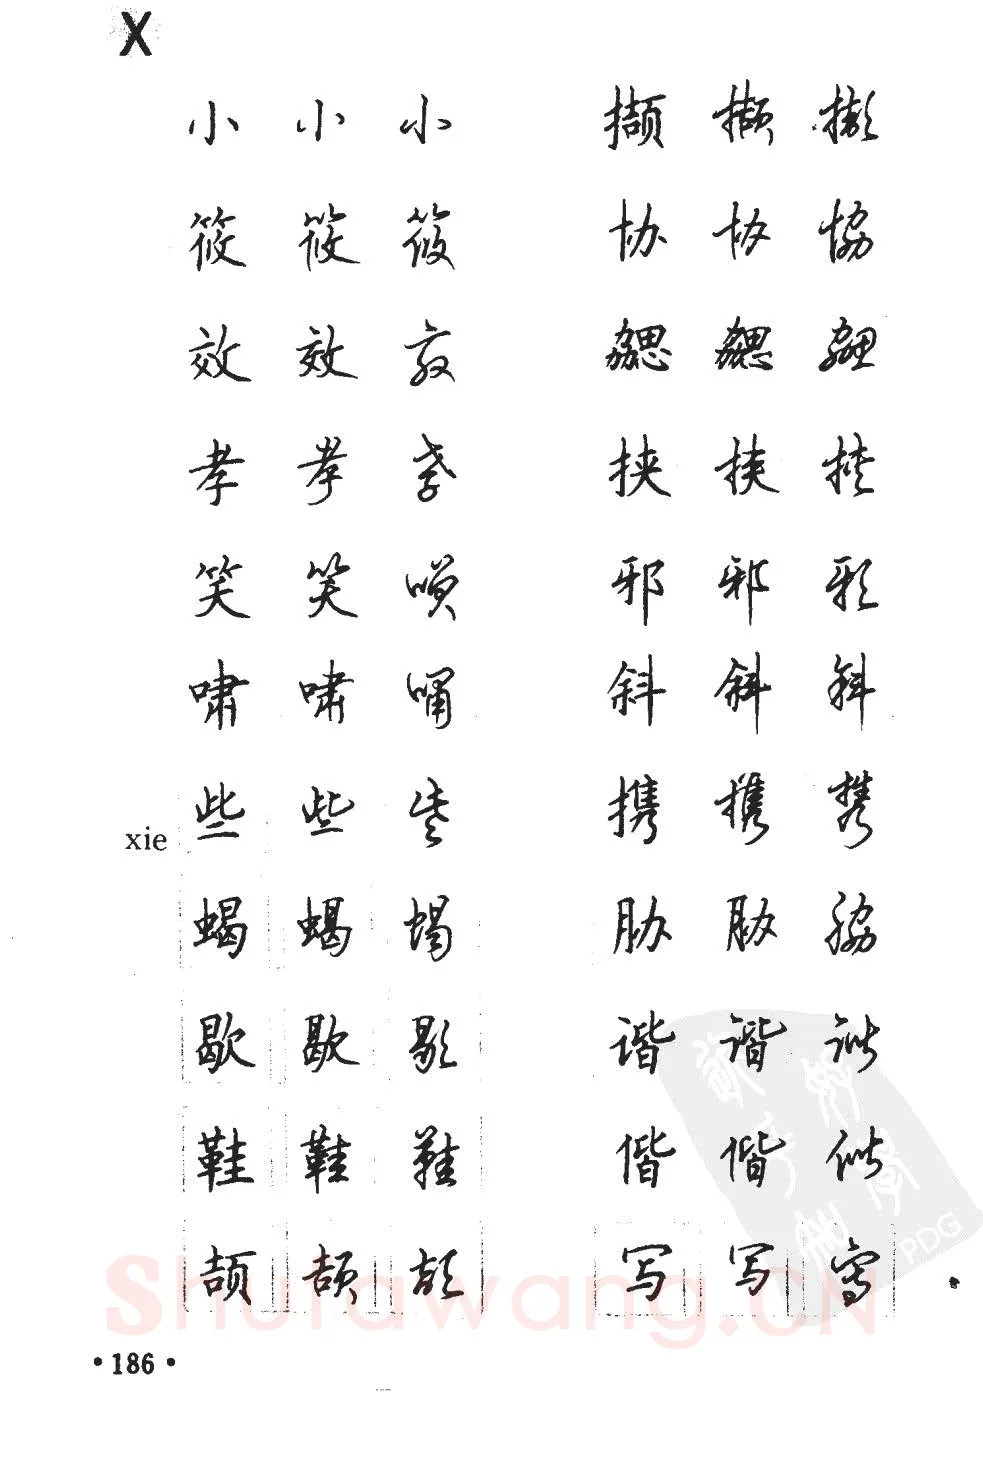 X
小 小 小
筱 筱 筱
效 效 效
孝 孝 孝
笑 笑 唉
啸 啸 嘯
xie 些 些 些
蝎 蝎 蝎
歇 歇 歇
鞋 鞋 鞋
颉 颉 颉
撷 撷 撷
协 协 協
勰 勰 勰
挟 挟 挟
邪 邪 邪
斜 斜 斜
携 携 携
胁 胁 脇
谐 谐 谐
偕 偕 偕
写 写 寫
·186·
Shufawang.CN
PDG